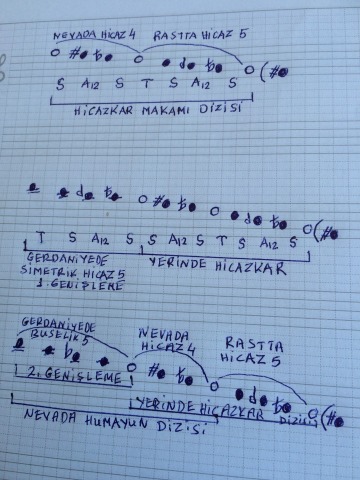 NEVADA HİCAZ 4 RASTTA HİCAZ 5
S A12 S T S A12 S
HİCAZKAR MAKAMI DİZİSİ
T S A12 S S A12 S T S A12 S
GERDANİYEDE YERİNDE HİCAZKAR
SİMETRİK HİCAZ 5
1. GENİŞLEME
GERDANİYEDE NEVADA RASTTA
BUSELİK 5 HİCAZ 4 HİCAZ 5
2. GENİŞLEME YERİNDE HİCAZKAR DİZİSİ
NEVADA HUMAYUN DİZİSİ